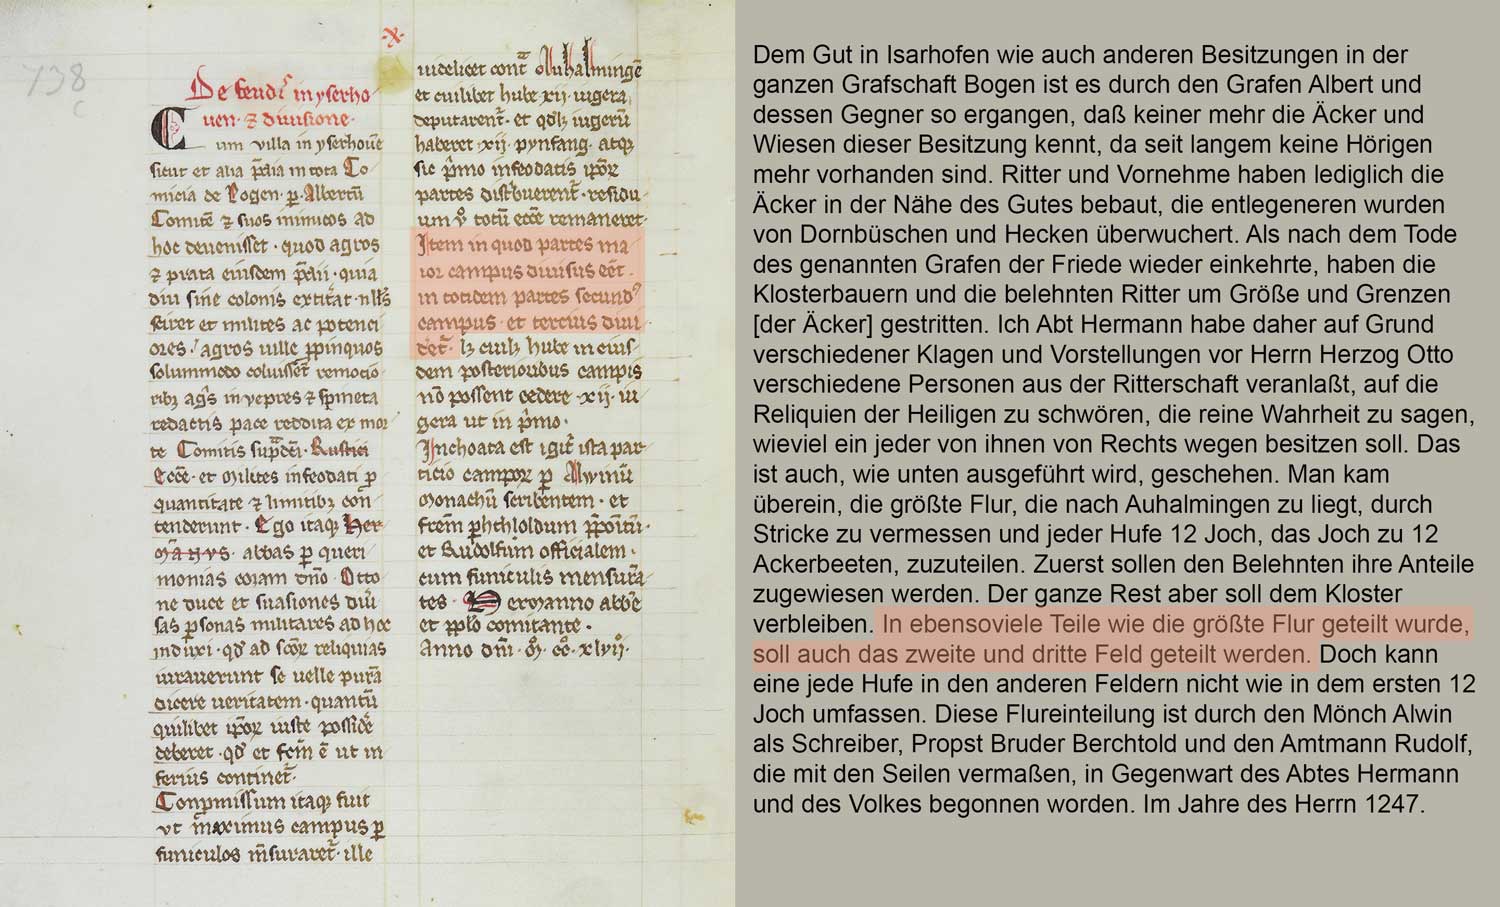 738
c
X
De feud' in yserho
uen · ⁊ diuisione ·
Cum villa in yserhoue
sicut et alia p̄dia in tota Co
micia de Bogen · p Albertū
Comitē ⁊ suos inimicos ad
hoc deuenisset · quod agros
⁊ prata eiusdem p̄dii · quia
diu sine colonis
sciret et milites ac potenci
ores · agros uille ppinquos
solummodo coluissēt remocio
in vepres ⁊ spineta
redactis pace reddita ex mor
te Comitis · Rustici
Ecce · et milites infeodati p
quantitate ⁊ con
tenderunt · Ego itaq; Her
mānus · abbas p queri
monias coram dn̄o · Otto
ne duce et suasiones diū
sas psonas militares ad hoc
induxi · ad reliquias
iurauerunt se uelle purā
dicere ueritatem · quantū
quilibet iuste possidē
deberet · et ē ut in
ferius continet ·
Conpmissum itaq; fuit
vt maximus campus p
funiculos ille
uidelicet Auhalmingē
et cuilibet hube xii · iugera
deputarent · et iugerū
haberet · xii · pynfang · atq;
sic p̄mo infeodatis
partes · residu
um totū remaneret ·
Item in quod partes ma
ior campus diuisus
in totidem partes secund'
campus · et tercius diui
det · hube in eius
dem posterioribus campis
nō possent cedere · xii · iu
gera ut in p̄mo ·
Inchoata est ista par
ticio p Alwinū
monachū scribentem · et
et Rudolfum officialem ·
cum funiculis mensurā
tes · Hermanno abbē
et pplo comitante ·
Anno dn̄i · M · cc · xlvii ·
Dem Gut in Isarhofen wie auch anderen Besitzungen in der
ganzen Grafschaft Bogen ist es durch den Grafen Albert und
dessen Gegner so ergangen, daß keiner mehr die Äcker und
Wiesen dieser Besitzung kennt, da seit langem keine Hörigen
mehr vorhanden sind. Ritter und Vornehme haben lediglich die
Äcker in der Nähe des Gutes bebaut, die entlegeneren wurden
von Dornbüschen und Hecken überwuchert. Als nach dem Tode
des genannten Grafen der Friede wieder einkehrte, haben die
Klosterbauern und die belehnten Ritter um Größe und Grenzen
[der Äcker] gestritten. Ich Abt Hermann habe daher auf Grund
verschiedener Klagen und Vorstellungen vor Herrn Herzog Otto
verschiedene Personen aus der Ritterschaft veranlaßt, auf die
Reliquien der Heiligen zu schwören, die reine Wahrheit zu sagen,
wieviel ein jeder von ihnen von Rechts wegen besitzen soll. Das
ist auch, wie unten ausgeführt wird, geschehen. Man kam
überein, die größte Flur, die nach Auhalmingen zu liegt, durch
Stricke zu vermessen und jeder Hufe 12 Joch, das Joch zu 12
Ackerbeeten, zuzuteilen. Zuerst sollen den Belehnten ihre Anteile
zugewiesen werden. Der ganze Rest aber soll dem Kloster
verbleiben. In ebensoviele Teile wie die größte Flur geteilt wurde,
soll auch das zweite und dritte Feld geteilt werden. Doch kann
eine jede Hufe in den anderen Feldern nicht wie in dem ersten 12
Joch umfassen. Diese Flureinteilung ist durch den Mönch Alwin
als Schreiber, Propst Bruder Berchtold und den Amtmann Rudolf,
die mit den Seilen vermaßen, in Gegenwart des Abtes Hermann
und des Volkes begonnen worden. Im Jahre des Herrn 1247.